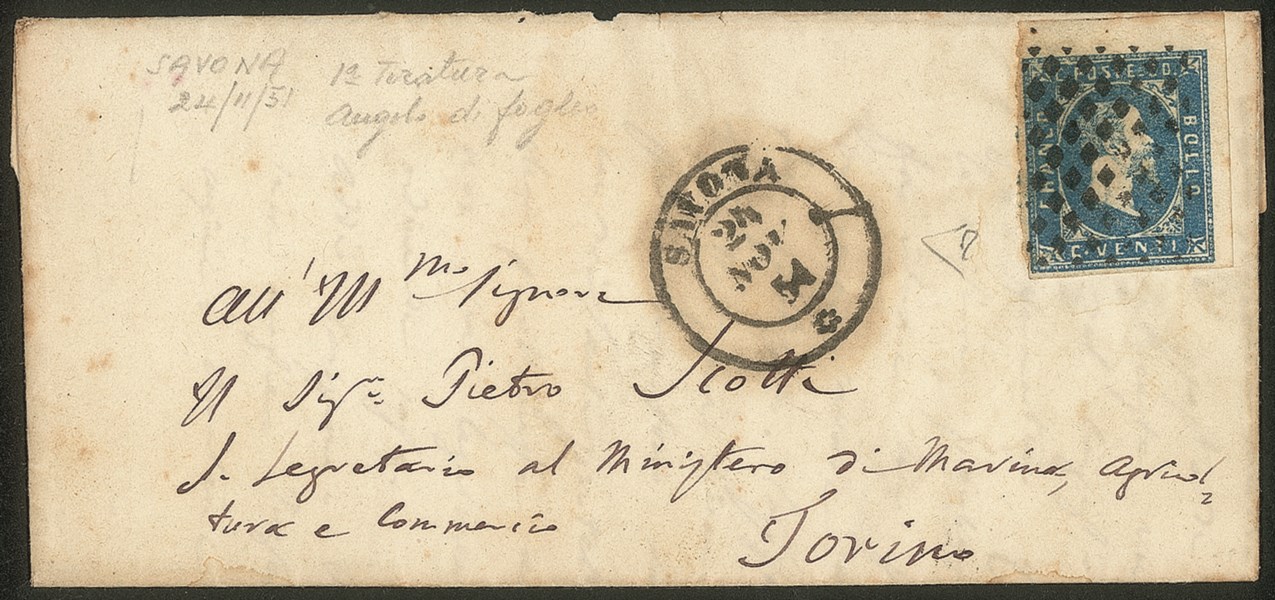 SAVONA
24/11/51
1ª Tiratura
Angolo di foglio
FRANCO
POSTE D.
BOLLO
C. VENTI
SAVONA
24
NOV
All' Ill.mo Signore
Il Sig.r Pietro Scotti
S. Segretario al Ministero di Marina, Agricol-
tura e Commercio
Torino